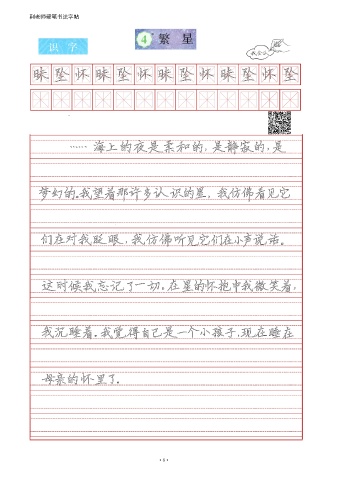 识字
4 繁星
我会写
昧坠怀昧坠怀昧坠怀昧坠怀坠
……海上的夜是柔和的,是静寂的,是
梦幻的。我望着那许多认识的星,我仿佛看见它
们在对我眨眼,我仿佛听见它们在小声说话。
这时候我忘记了一切。在星的怀抱中我微笑着,
我沉睡着。我觉得自己是一个小孩子,现在睡在
母亲的怀里了。